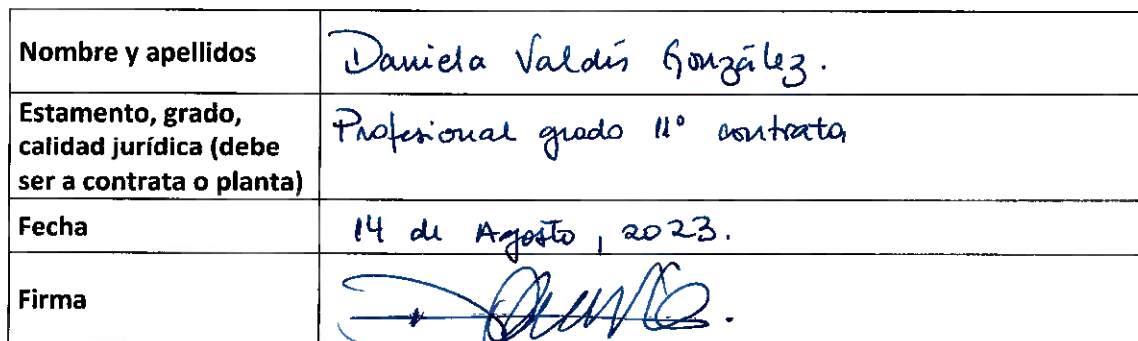 Nombre y apellidos
Daniela Valdés González.
Estamento, grado,
calidad jurídica (debe
ser a contrata o planta)
Profesional grado 11° contrata
Fecha
14 de Agosto, 2023.
Firma